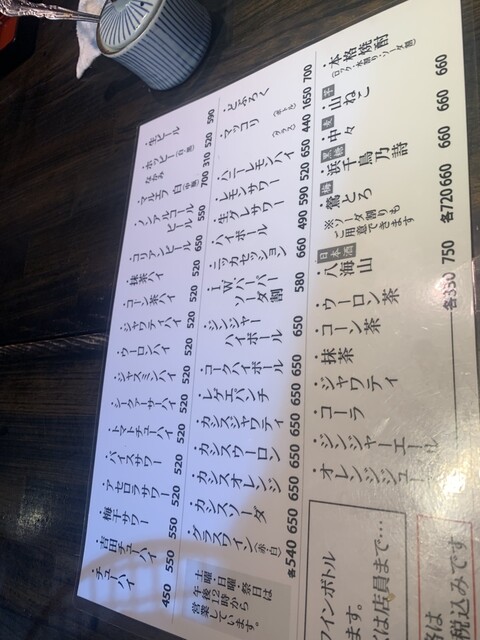 ・生ビール 590
・ホッピー(白・黒) 520
なかみ 310
・マルエフ 白(中瓶) 700
・ノンアルコール
ビール 550
・コリアンビール 650
・抹茶ハイ 520
・コーン茶ハイ 520
・ジャワティハイ 520
・ウーロンハイ 520
・ジャスミンハイ 520
・シークァーサーハイ 520
・トマトチューハイ 520
・バイスサワー 520
・アセロラサワー 520
・梅干サワー 550
・吉田チューハイ 550
・チューハイ 450
・どぶろく 700
・マッコリ (ボトル) 1650
(グラス) 440
・ハニーレモンハイ 650
・レモンサワー 520
・生グレサワー 590
・ハイボール 490
・ニッカセッション 660
・I.W.ハーパー
ソーダ割 580
・ジンジャー
ハイボール 650
・コークハイボール 650
・レゲエパンチ 650
・カシスジャワティ 650
・カシスウーロン 650
・カシスオレンジ 650
・カシスソーダ 650
・グラスワイン(赤・白) 各540
土曜・日曜・祭日は
午後12時から
営業しています。
・本格焼酎
(ロック・水割り・ソーダ割)
・芋 山ねこ 660
・麦 中々 660
・黒糖 浜千鳥乃詩 660
・梅 鶯とろ 660
※ソーダ割りも
ご用意できます
日本酒
・八海山 各720
・ウーロン茶
・コーン茶
・抹茶
・ジャワティ
・コーラ
・ジンジャーエール
・オレンジジュー
750
各350
ワインボトル
ます。
は店員まで…
は
税込みです